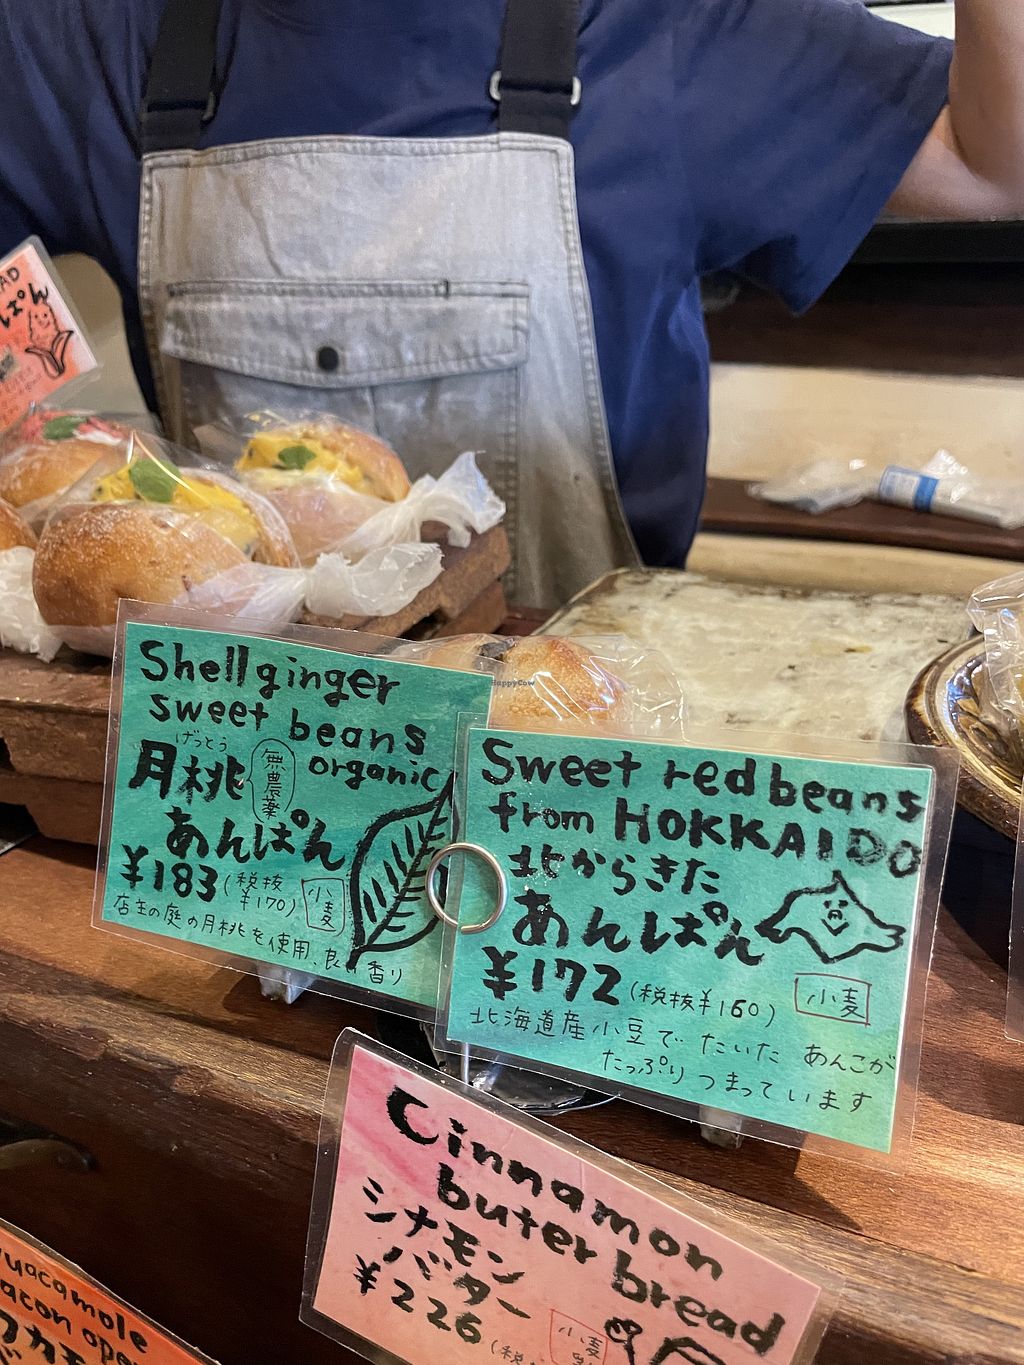 AD
ぱん
Shell ginger
sweet beans
organic
げっとう
月桃
無農薬
あんぱん
¥183(税抜
¥170)
小麦
店主の庭の月桃を使用、良い香り
HappyCow
Sweet red beans
from HOKKAIDO
北からきた
あんぱん
¥172(税抜¥160)
小麦
北海道産小豆でたいたあんこが
たっぷりつまっています
Cinnamon
buter bread
シナモン
バター
¥226
(税
小麦
uacamole
acon ope